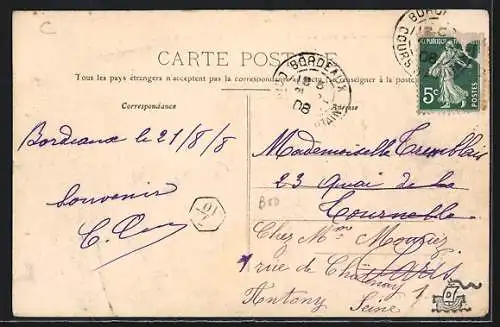 C
CARTE POSTALE
Tous les pays étrangers n'acceptent pas la correspondance au recto. Se renseigner à la poste
Correspondance
Adresse
BORDEAUX
08
BORDEAUX
08
5c
POSTES
Bordeaux le 21/8/8
Souvenir
Mademoiselle Tremblais
23 Quai de la
Tournelle
Paris
Chez Mme
1 rue de Châtenay
Antony Seine